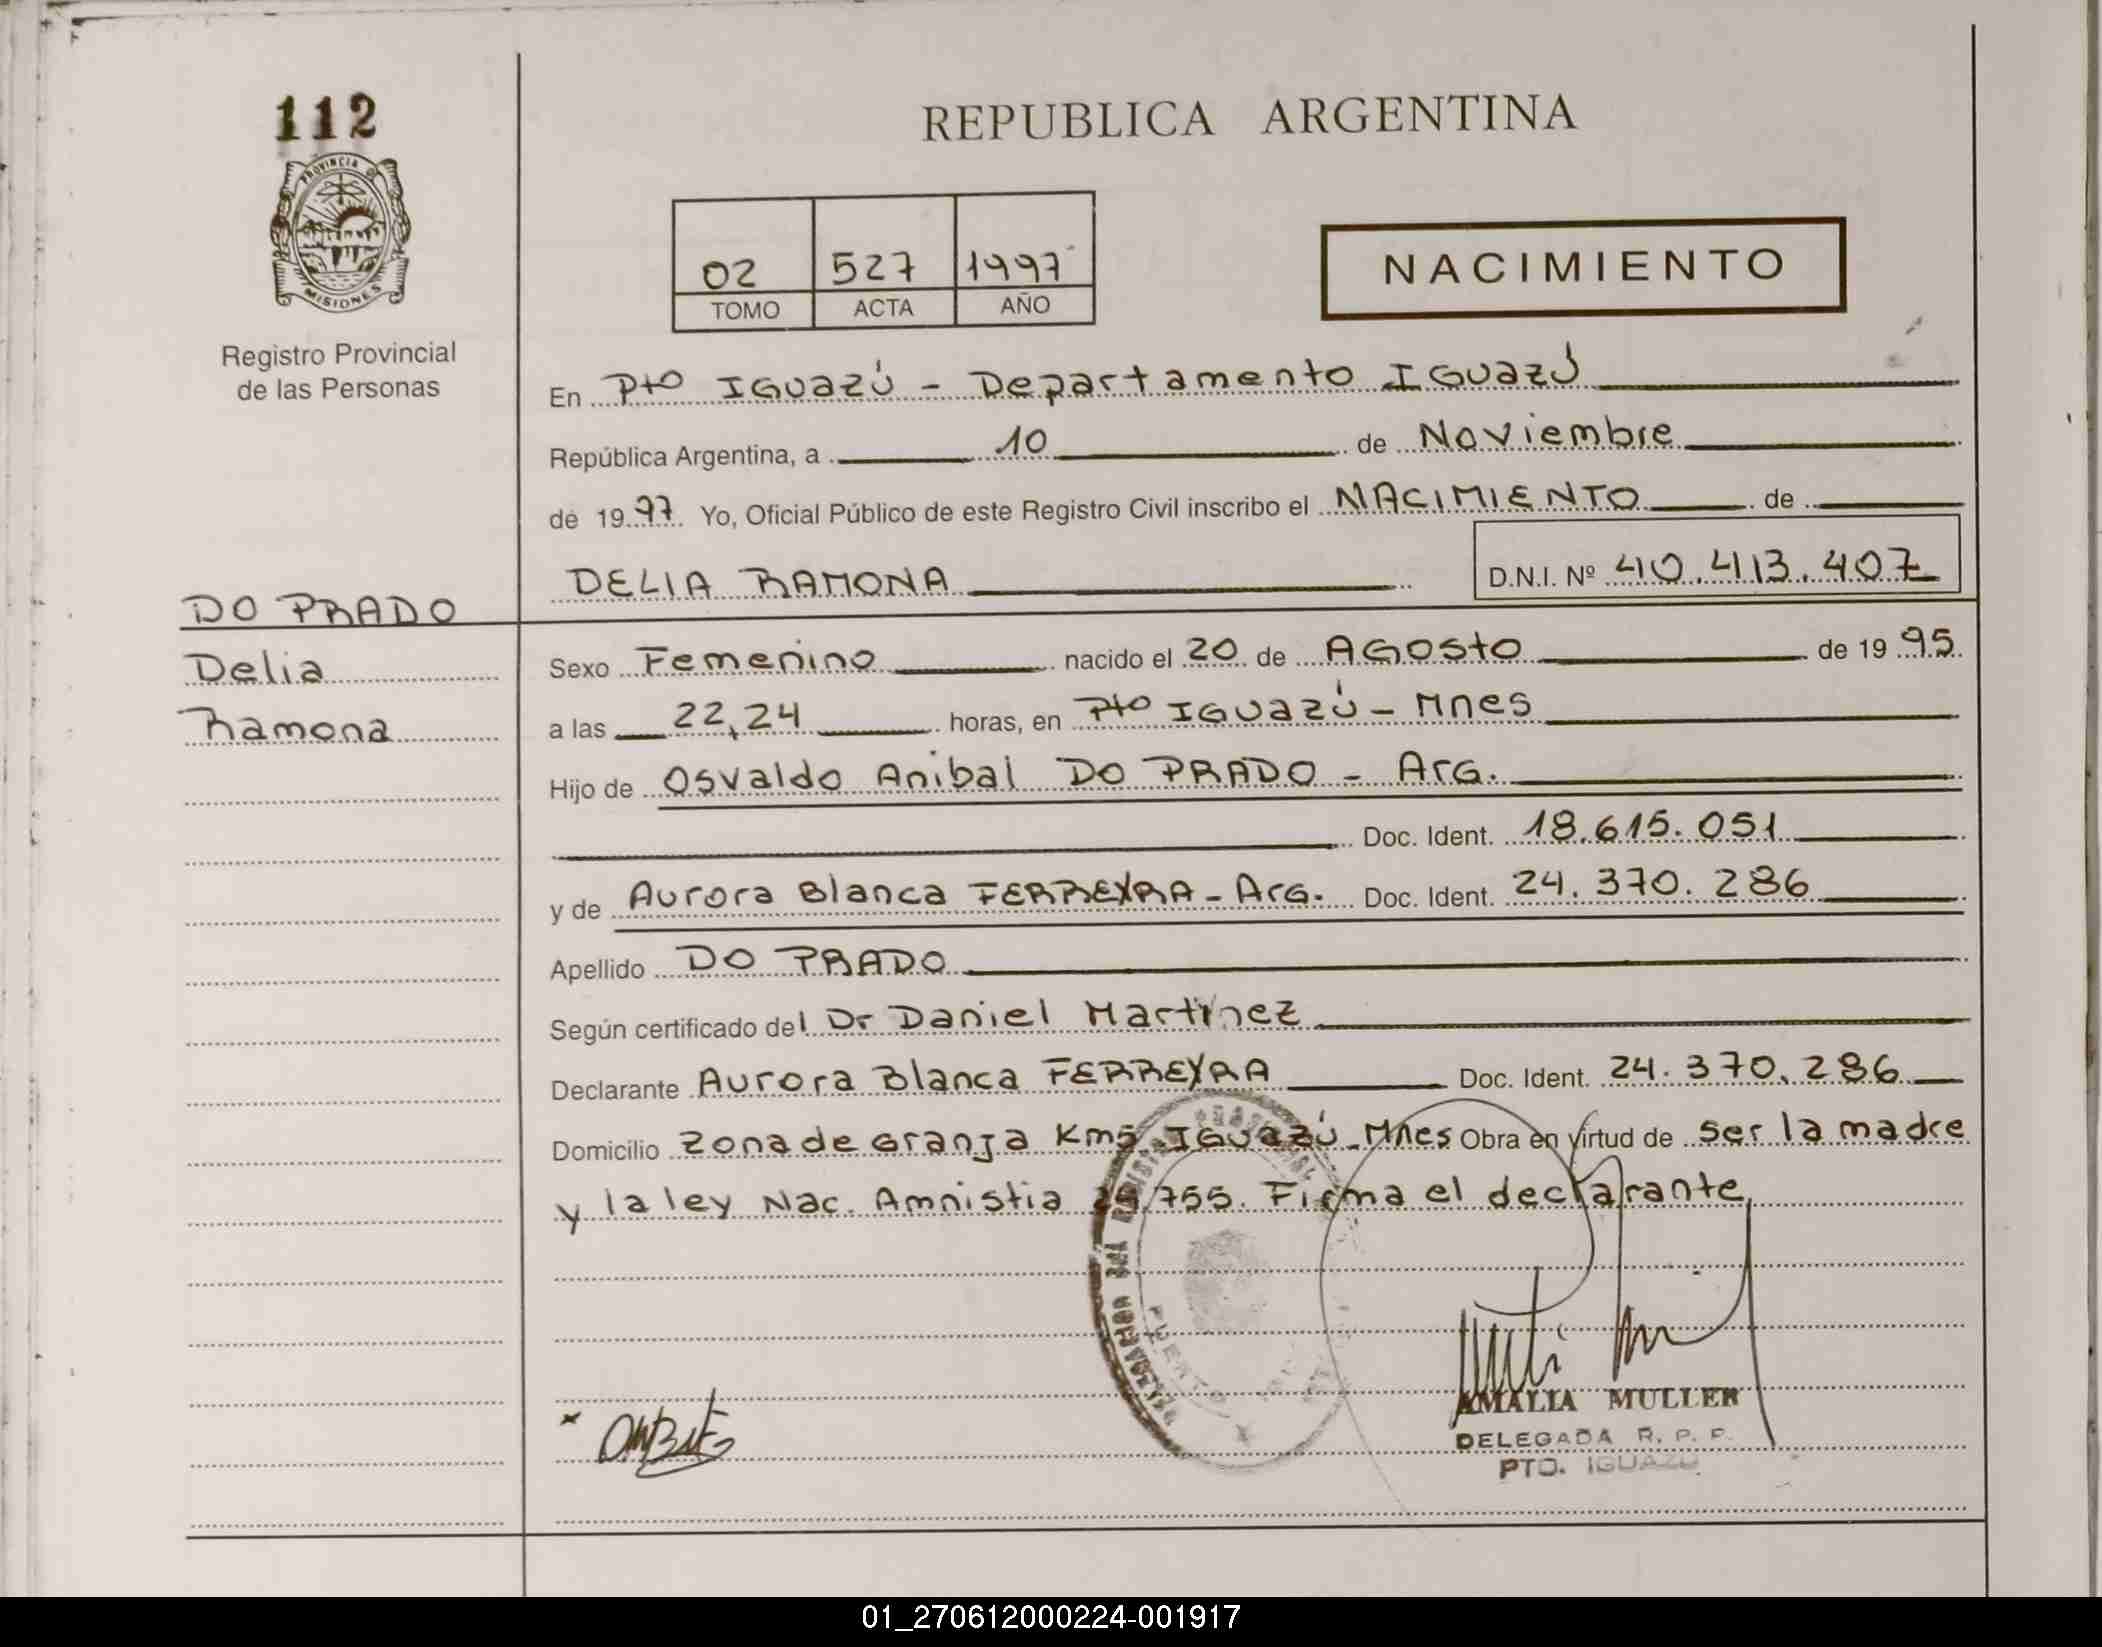 112
PROVINCIA
MISIONES
Registro Provincial
de las Personas
REPUBLICA ARGENTINA
02 527 1997
TOMO ACTA AÑO
NACIMIENTO
En Pto IGUAZÚ - Departamento IGUAZÚ
República Argentina, a 10 de Noviembre
de 1997 Yo, Oficial Público de este Registro Civil inscribo el NACIMIENTO de
DELIA RAMONA D.N.I. Nº 40.413.407
DO PRADO
Delia
Ramona
Sexo Femenino nacido el 20 de AGOSTO de 1995
a las 22,24 horas, en Pto IGUAZÚ - Mnes
Hijo de Osvaldo Anibal DO PRADO - ArG.
Doc. Ident. 18.615.051
y de Aurora Blanca FERREYRA - ArG. Doc. Ident. 24.370.286
Apellido DO PRADO
Según certificado del Dr Daniel Martinez
Declarante Aurora Blanca FERREYRA Doc. Ident. 24.370.286
Domicilio Zona de Granja Km5 IGUAZÚ - Mnes Obra en virtud de ser la madre
y la ley Nac. Amnistia 24.755. Firma el declarante
PUERTO
AMALIA MULLER
DELEGADA R. P. P.
PTO. IGUAZU
01_270612000224-001917